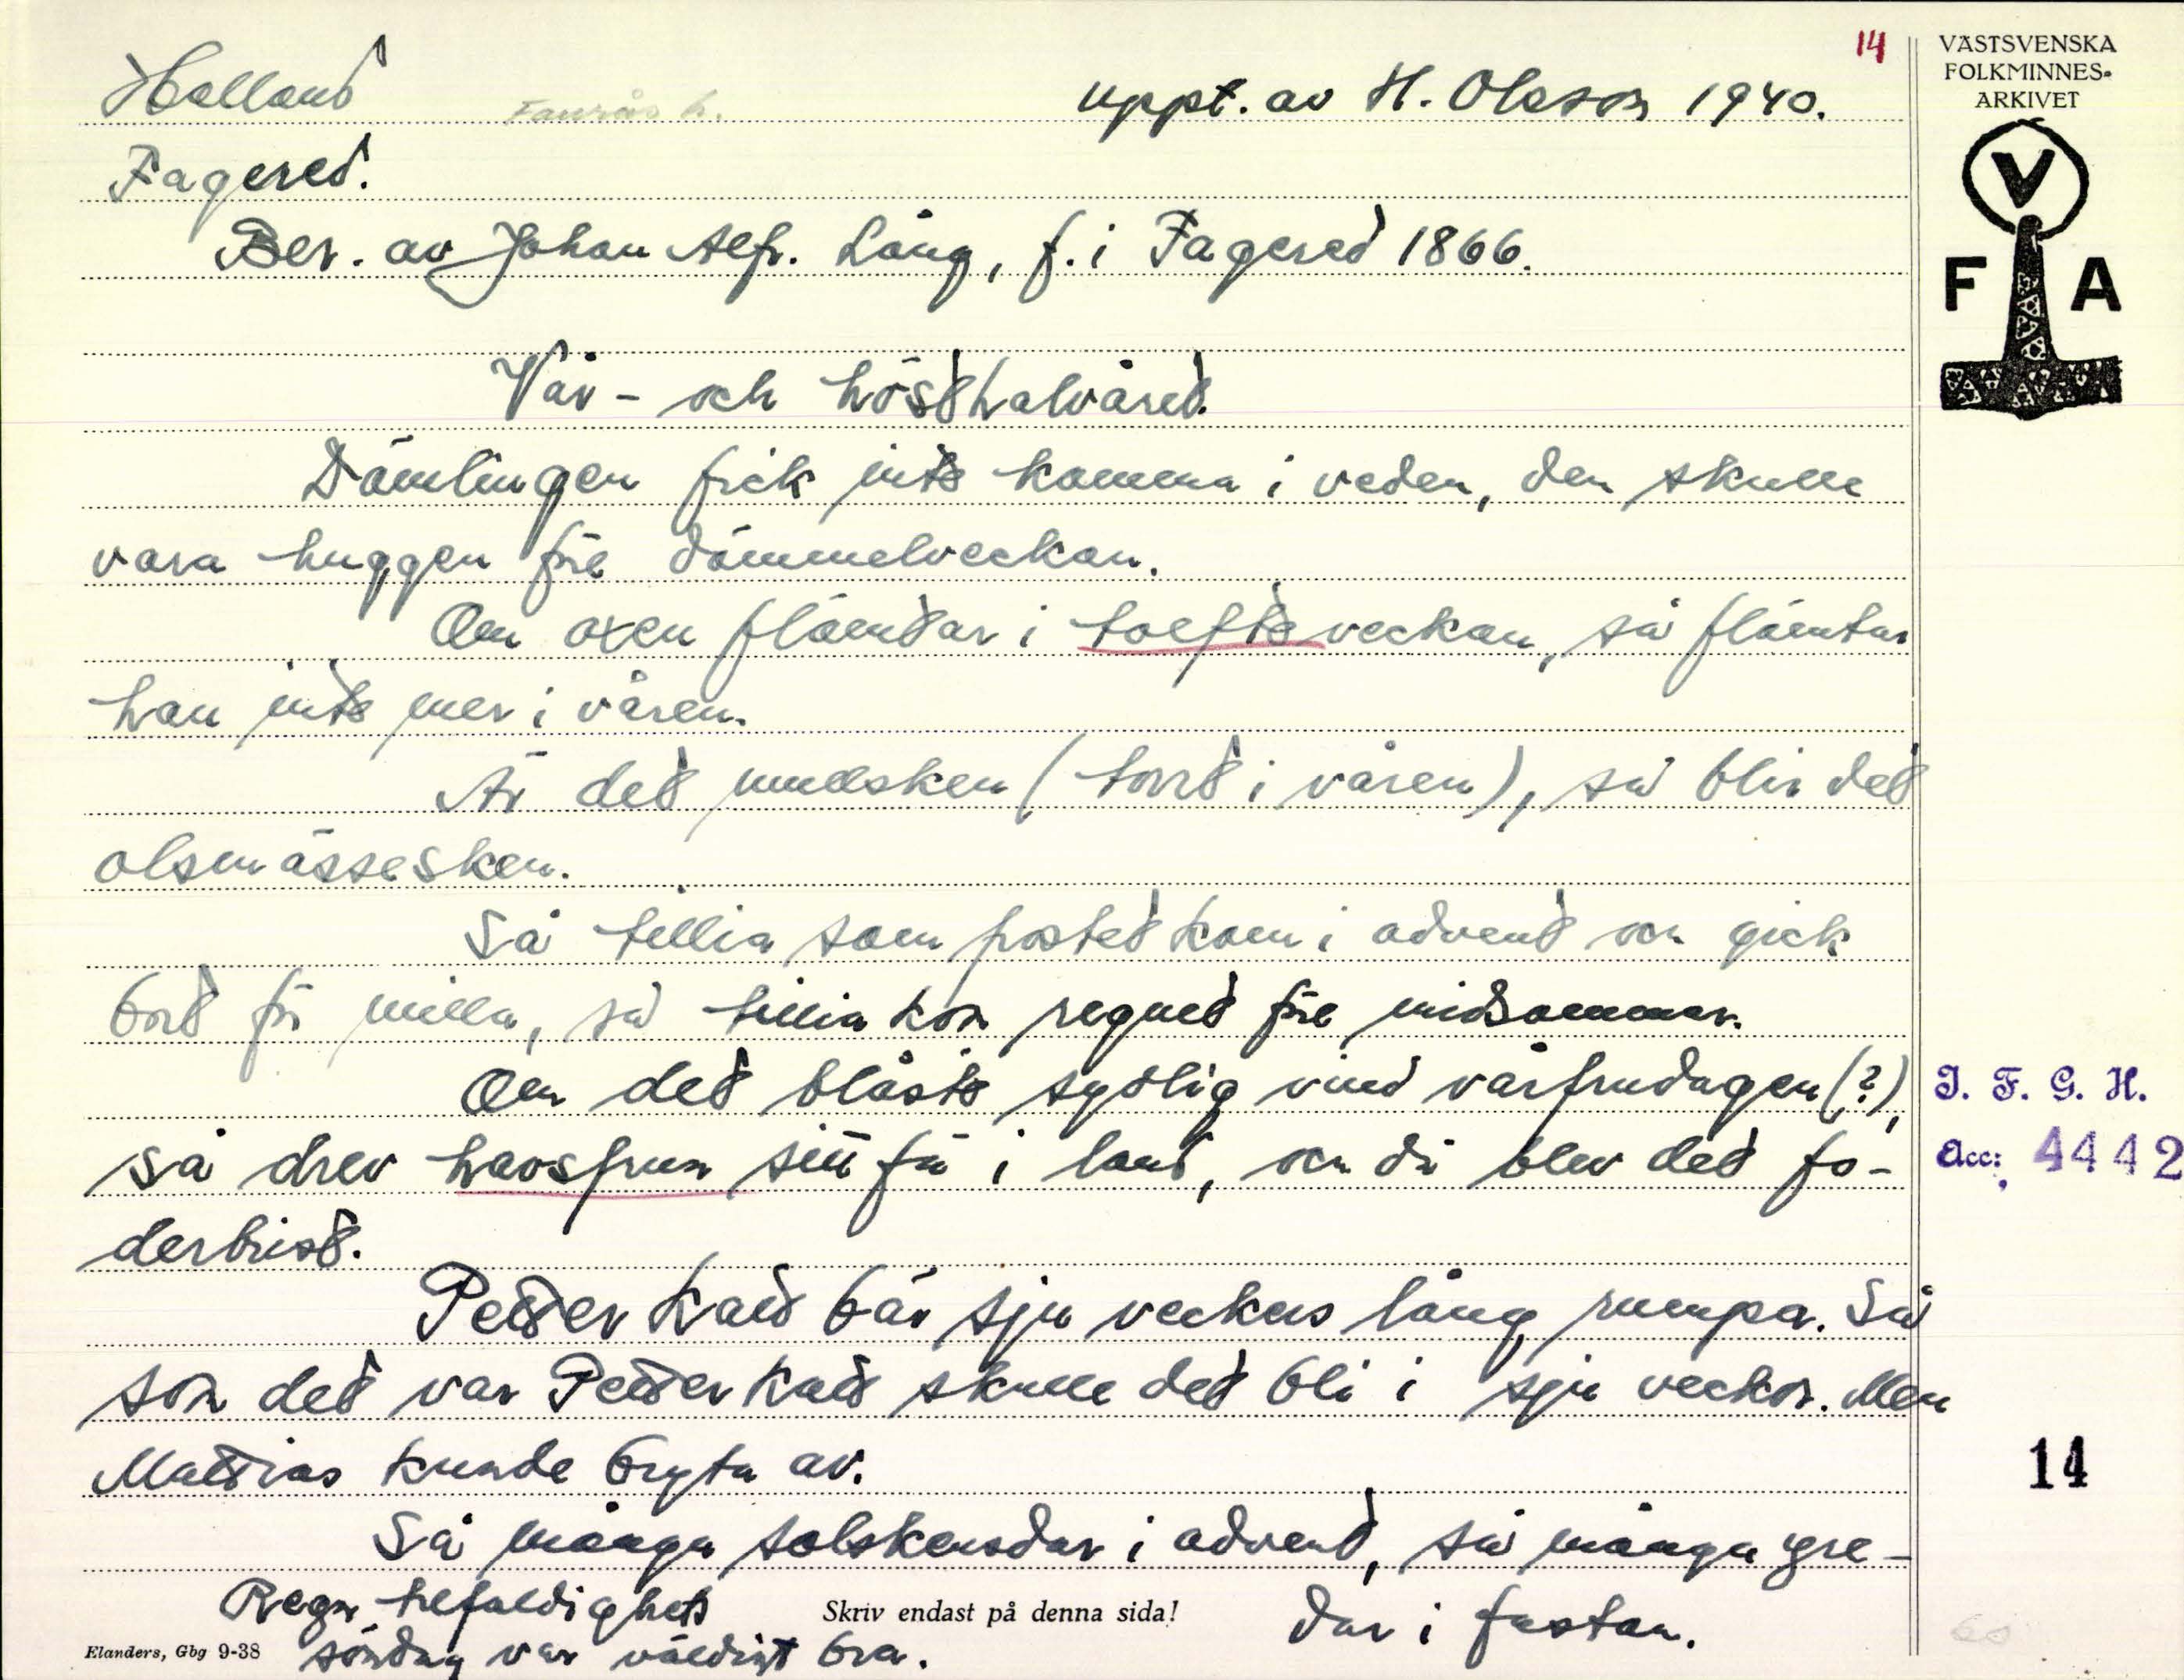 14
VÄSTSVENSKA
FOLKMINNES-
ARKIVET
V
F A
Halland Faurås h. uppt. av H. Olsson 1940.
Fagered.
Ber. av Johan Alfr. Lång, f. i Fagered 1866.
Vår- och hösthalvåret.
Dämlingen fick inte komma i veden, den skulle
vara huggen före dämmelveckan.
Om oxen flämtar i toefteveckan, så flämtar
han inte mer i våren.
Är det mullsken (torrt i våren), så blir det
olsmässesken.
Så tillia som frostet kom i advent och gick
bort för milla, så tillia kom regnet före midsommar.
Om det blåste sydlig vind vårfrudagen (?),
så drev havsfrun sitt fä i land, och då blev det fo-
derbrist.
Petter Katt bär sju veckers lång rumpa. Så
som det var Petter Katt skulle det bli i sju veckor. Men
Mattias kunde bryta av.
Så många solskensdar i advent, så många yre-
dar i fastan.
Regn trefaldighets
söndag var väldigt bra.
Skriv endast på denna sida!
Elanders, Gbg 9-38
I. F. G. H.
Acc: 4442
14